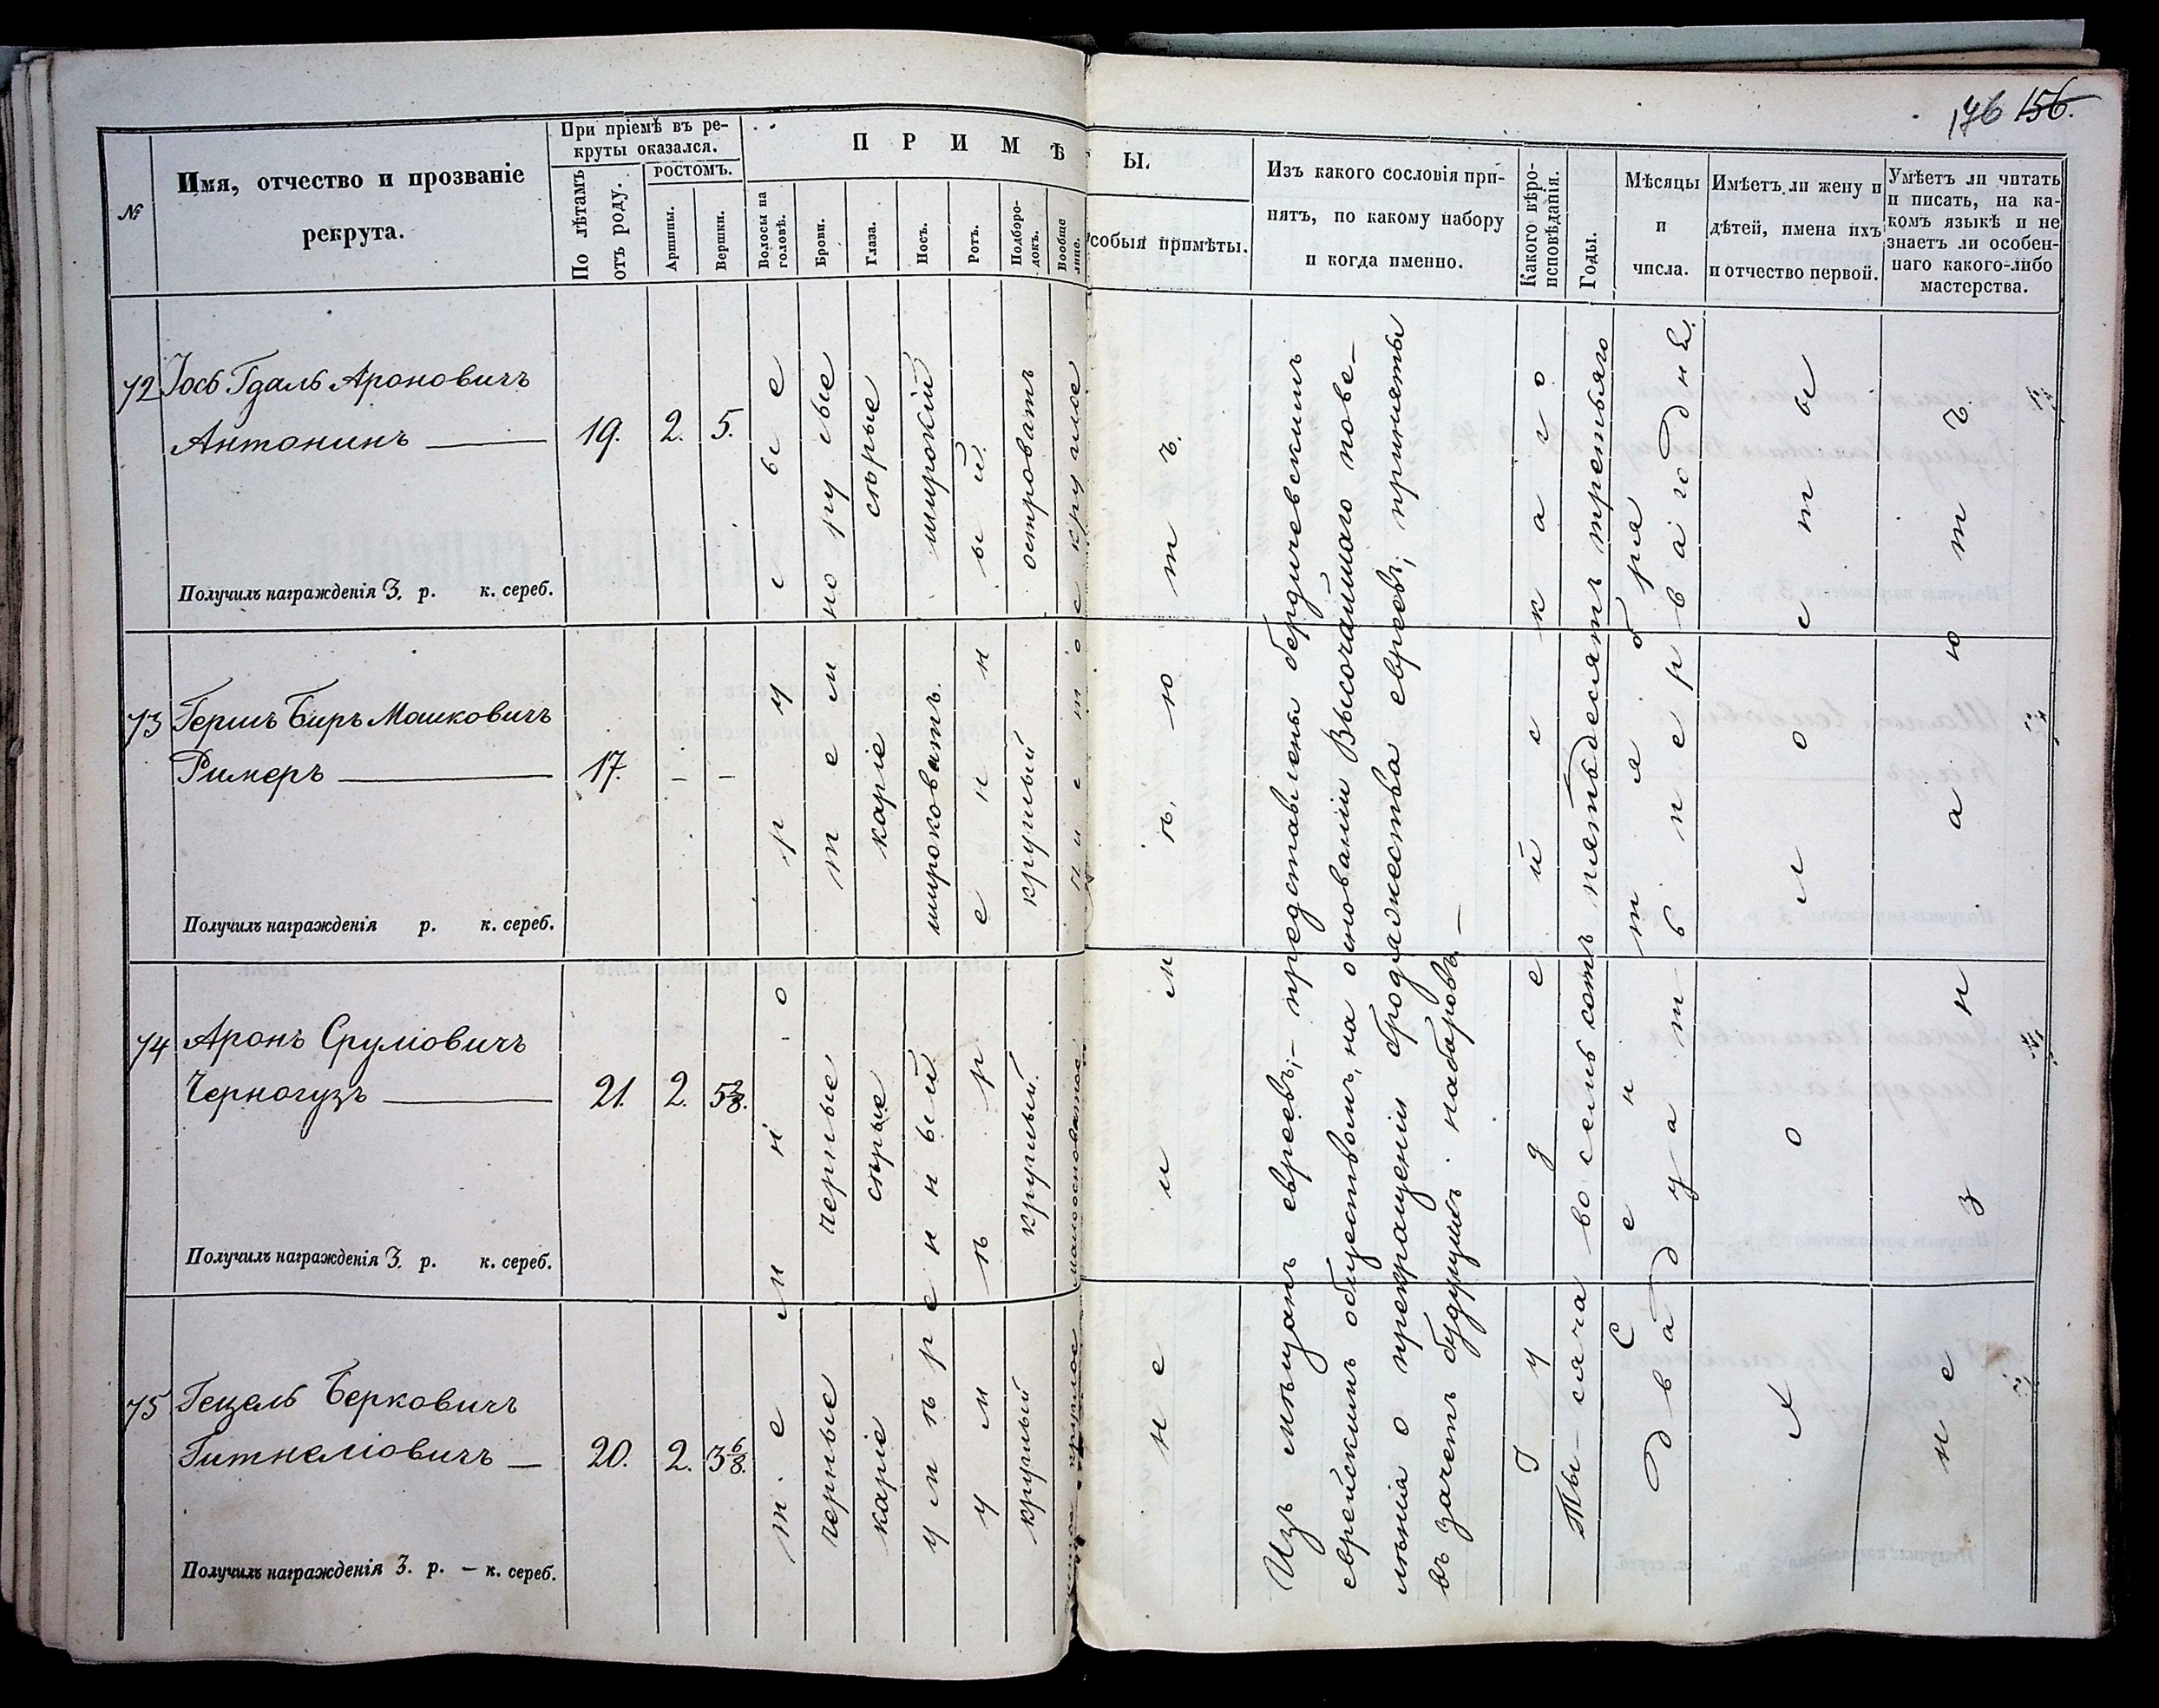 176 156.
№
Имя, отчество и прозваніе
рекрута.
При пріемѣ въ ре-
круты оказался.
По лѣтамъ
отъ роду.
РОСТОМЪ.
Аршины.
Вершки.
П Р И М Ѣ Т Ы.
Волосы на
головѣ.
Брови.
Глаза.
Носъ.
Ротъ.
Подборо-
докъ.
Вообще
лице.
собыя примѣты.
Изъ какого сословія при-
нятъ, по какому набору
и когда именно.
Какого вѣро-
исповѣданія.
Годы.
Мѣсяцы
и
числа.
Имѣетъ ли жену и
дѣтей, имена ихъ
и отчество первой.
Умѣетъ ли читать
и писать, на ка-
комъ языкѣ и не
знаетъ ли особен-
наго какого-либо
мастерства.
72 Іось Гдаль Ароновичъ
Антонинъ — 19. 2. 5.
русые
сѣрые
широкій
островатъ
круглое
Получилъ награжденія 3. р. к. сереб.
73 Гершъ Беръ Мошковичъ
Римеръ — 17. – –
темно
каріе
широковатъ.
круглый
чистое
Получилъ награжденія р. к. сереб.
74 Аронъ Сруліовичъ
Черногузъ — 21. 2. 5 2/8.
черные
сѣрые
круглый.
Получилъ награжденія 3. р. к. сереб.
75 Гецель Берковичъ
Гитнеліовичъ — 20. 2. 3 6/8.
темно . русые
черные
каріе
умѣренный
умѣренный.
круглый
круглое
Получилъ награжденія 3. р. – к. сереб.
не имѣютъ.
Изъ мѣщанъ евреевъ;– представлены бердичевскимъ
еврейскимъ обществомъ, на основаніи Высочайшаго пове-
лѣнія о прекращеніи бродяжества евреевъ, приняты
въ зачетъ будущихъ наборовъ. –
Іудейскаго
Тысяча во семь сотъ пятьдесятъ третьяго
Сентября
двадцать перваго дня.
Холосты
не знаютъ